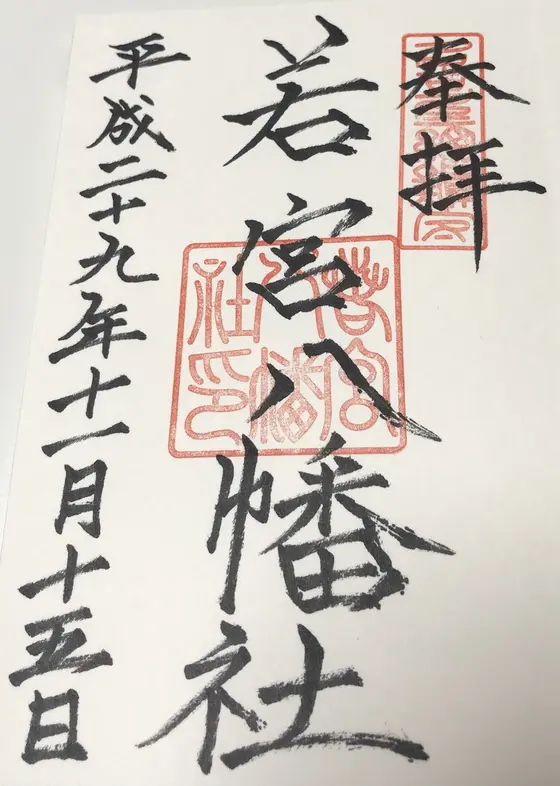 奉拝
若宮八幡社
平成二十九年十一月十五日
若宮八幡社印